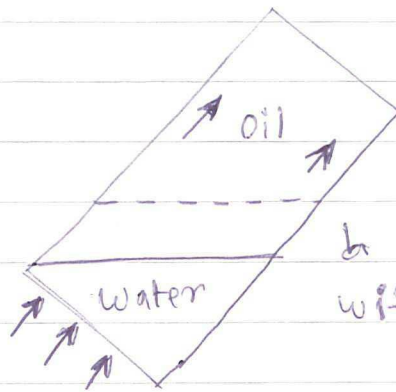 oil
water
wit